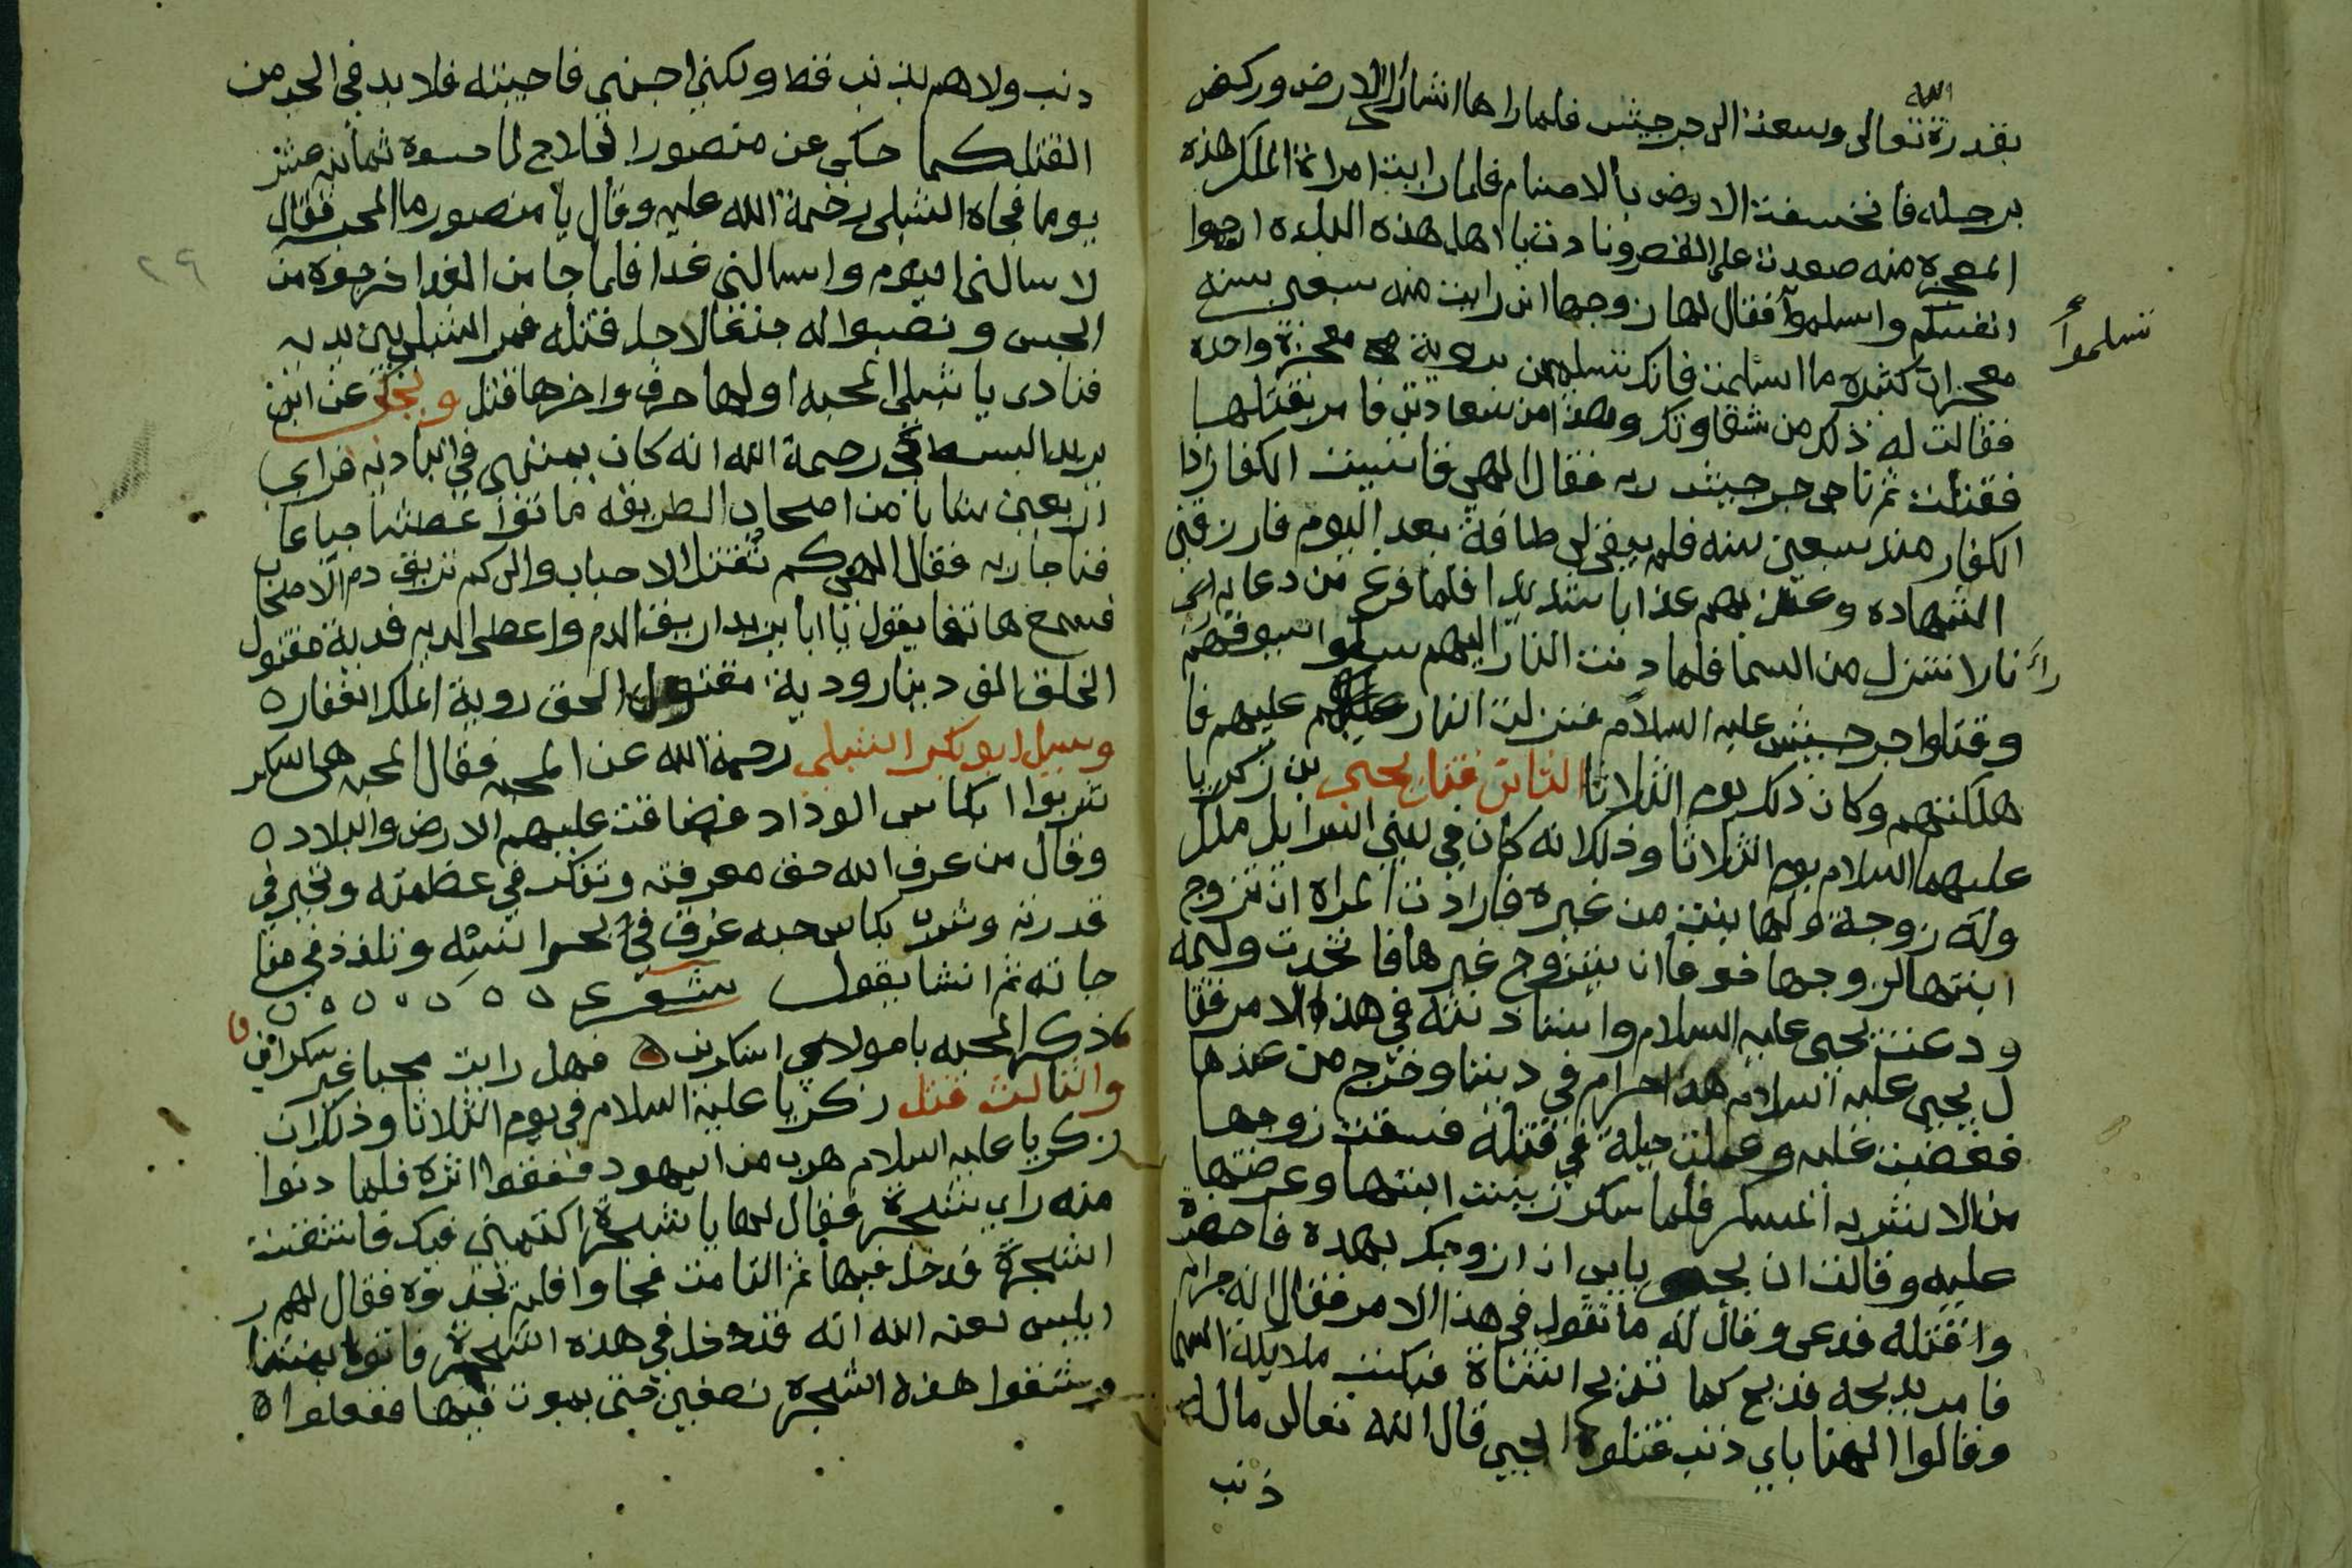 بقدرة الله تعالى وسعت الى جرجيس فلما راها اشار الى الارض وركض
برجله فانخسفت الارض بالاصنام فلما رايت امراة الملك هذه
المعجزه منه صعدت على القصر ونادت يا اهل هذه البلده ارحموا
انفسكم واسلموا فقال لها زوجها انى رايت منه سبعين سنه
تسلموا
معجزات كثيره ما اسلمت فانك تسلمين بروية معجزة واحده
فقالت له ذلك من شقاوتك وهذا من سعادتى فامر بقتلها
فقتلت ثم ناجى جرجيس ربه فقال الهي قاسيت الكفار اذا
الكفار منذ سبعين سنه فلم يبقى لى طاقة بعد اليوم فارزقني
الشهاده وعذبهم عذابا شديدا فلما فرغ من دعايه
نارا تنزل من السما فلما دنت النار اليهم سلوا سيوفهم
وقتلوا جرجيس عليه السلام فنزلت النار عليهم فا
هلكتهم وكان ذلك يوم الثلاثا الثانى قتل يحيى بن زكريا
عليهما السلام يوم الثلاثا وذلك انه كان في بني اسرايل ملك
وله زوجة ولها بنت من غيره فارادت المراه ان تزوج
ابنتها لزوجها خوفا ان يتزوج غيرها فاتخدت وليمه
ودعت يحيى عليه السلام واستاذنته في هذا الامر فقا
ل يحيى عليه السلام هذا حرام في ديننا وخرج من عندها
فغضبت عليه وعملت حيلة في قتله فسقت زوجها
من الاشربه المسكر فلما سكر زينت ابنتها وعرضتها
عليه وقالت ان يحيى يابى ان ازوجك بهده فاحضره
واقتله فدعى وقال له ما تقول في هذا الامر فقال انه حرام
فامر بدبحه فذبح كما تذبح الشاة فبكت ملايكة السما
وقالوا الهنا باي ذنب قتلوا يحيى قال الله تعالى ماله
ذنب
دنب ولا هم بذنب قط ولكني احبني فاحببته فلا بد في الحب من
القتل كما حكى عن منصور الحلاج لما حبسوه ثمانية عشر
يوما فجاه الشبلى رحمة الله عليه وقال يا منصور ما المحبه فقال
٢٩
لا سالنى اليوم واسالني غدا فلما جا من الغد اخرجوه من
الحبس ونصبوا له جذعا لاجل قتله فمر الشبلي بين يديه
فنادى يا شبلى المحبه اولها حرق واخرها قتل وحكي عن ابى
يزيد البسطامي رحمة الله انه كان يمشى في الباديه فراى
اربعين شابا من اصحاب الطريقه ماتوا عطشا جياعا
فناجا ربه فقال الهي كم تقتل الاحباب والى كم تريق دم الاصحاب
فسمع هاتفا يقول يا ابا يزيد اريق الدم واعطى الديه فدية مقتول
الخلق الف دينار ودية مقتول الحق روية الملك الغفار ه
وسيل ابو بكر الشبلي رحمة الله عن المحبه فقال المحبه هى سكر
شربوا بكاس الوداد فضاقت عليهم الارض والبلاد ه
وقال من عرف الله حق معرفته وتفكر في عظمته وتحير في
قدرته وشرب بكاس حبه غرق في بحر انسه وتلذذ في منا
جاته ثم انشا يقول شعر ٥ ٥ ٥ ٥ ٥ ٥ ٥
ذكر المحبه يا مولاي اسكرنى ه فهل رايت محبا غير سكران
والثالث قتل زكريا عليه السلام في يوم الثلاثا وذلك ان
زكريا عليه السلام هرب من اليهود فقفوا اثره فلما دنوا
منه راي شجرة فقال لها يا شجرة اكتميني فيك فانشقت
الشجرة فدخل فيها ثم التامت فجاوا فلم يجدوه فقال لهم
ابليس لعنه الله انه قد دخل في هذه الشجرة فاتوه بمنشار
وشقوا هذه الشجره نصفين حتى يموت فيها ففعلوا ه